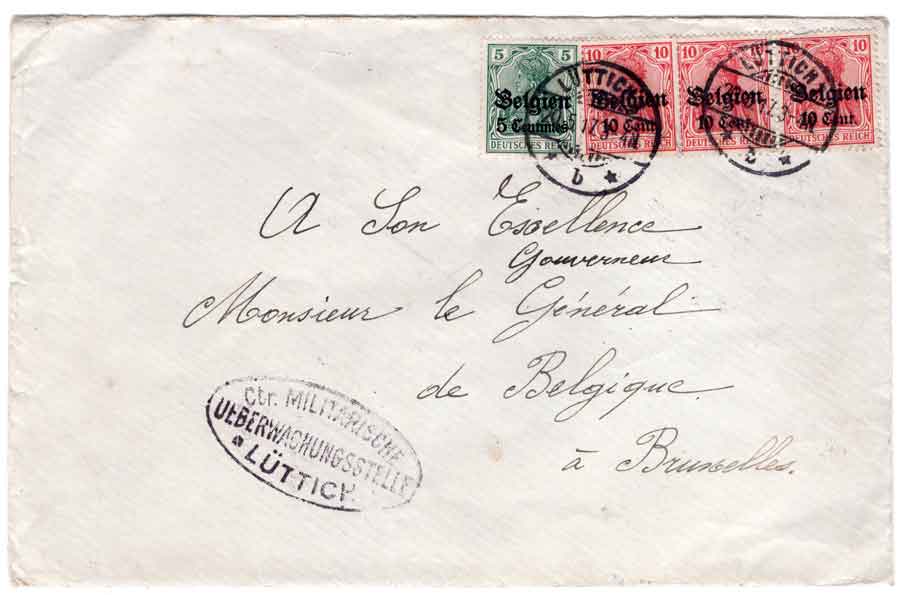 5 5 10 10 10 10
Belgien Belgien Belgien Belgien
5 Centimes 10 Cent. 10 Cent. 10 Cent.
DEUTSCHES REICH DEUTSCHES REICH DEUTSCHES REICH DEUTSCHES REICH
LÜTTICH
b
LÜTTICH
b
A Son Excellence
Gouverneur
Monsieur le Général
de Belgique
à Bruxelles.
Ctr. MILITÄRISCHE
UEBERWACHUNGSSTELLE
LÜTTICH